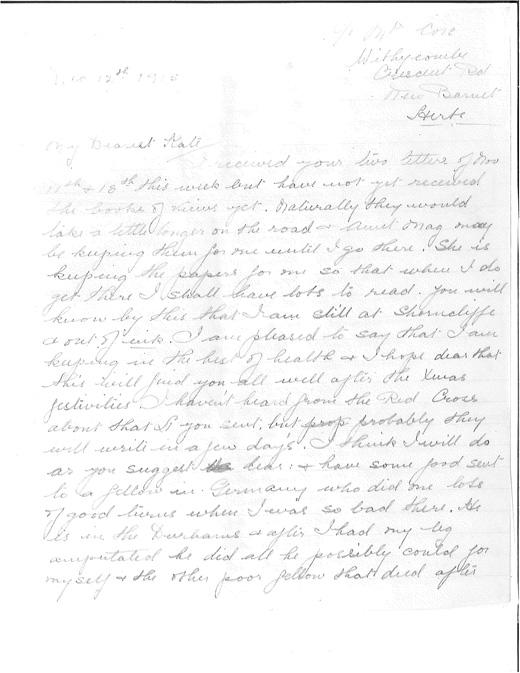 c/o Mrs Core
Withycombe
Crescent Rd
New Barnet
Herts
Dec 12th 1915
My Dearest Kate
I received your two letters of Nov
11th & 18th this week but have not yet received
the books of views yet. Naturally they would
take a little longer on the road & Aunt Mag may
be keeping them for me until I go there. She is
keeping the papers for me so that when I do
get there I shall have lots to read. You will
know by this that I am still at Shorncliffe
& out of ink. I am pleased to say that I am
keeping in the best of health & I hope dear that
this will find you all well after the Xmas
festivities. I haven't heard from the Red Cross
about that you sent, but prop probably they
will write in a few days. I think I will do
as you suggest dear: & have some food sent
to a fellow in Germany who did me lots
of good turns when I was so bad there. He
is in the Durhams & after I had my leg
amputated he did all he possibly could for
myself & the other poor fellow that died after